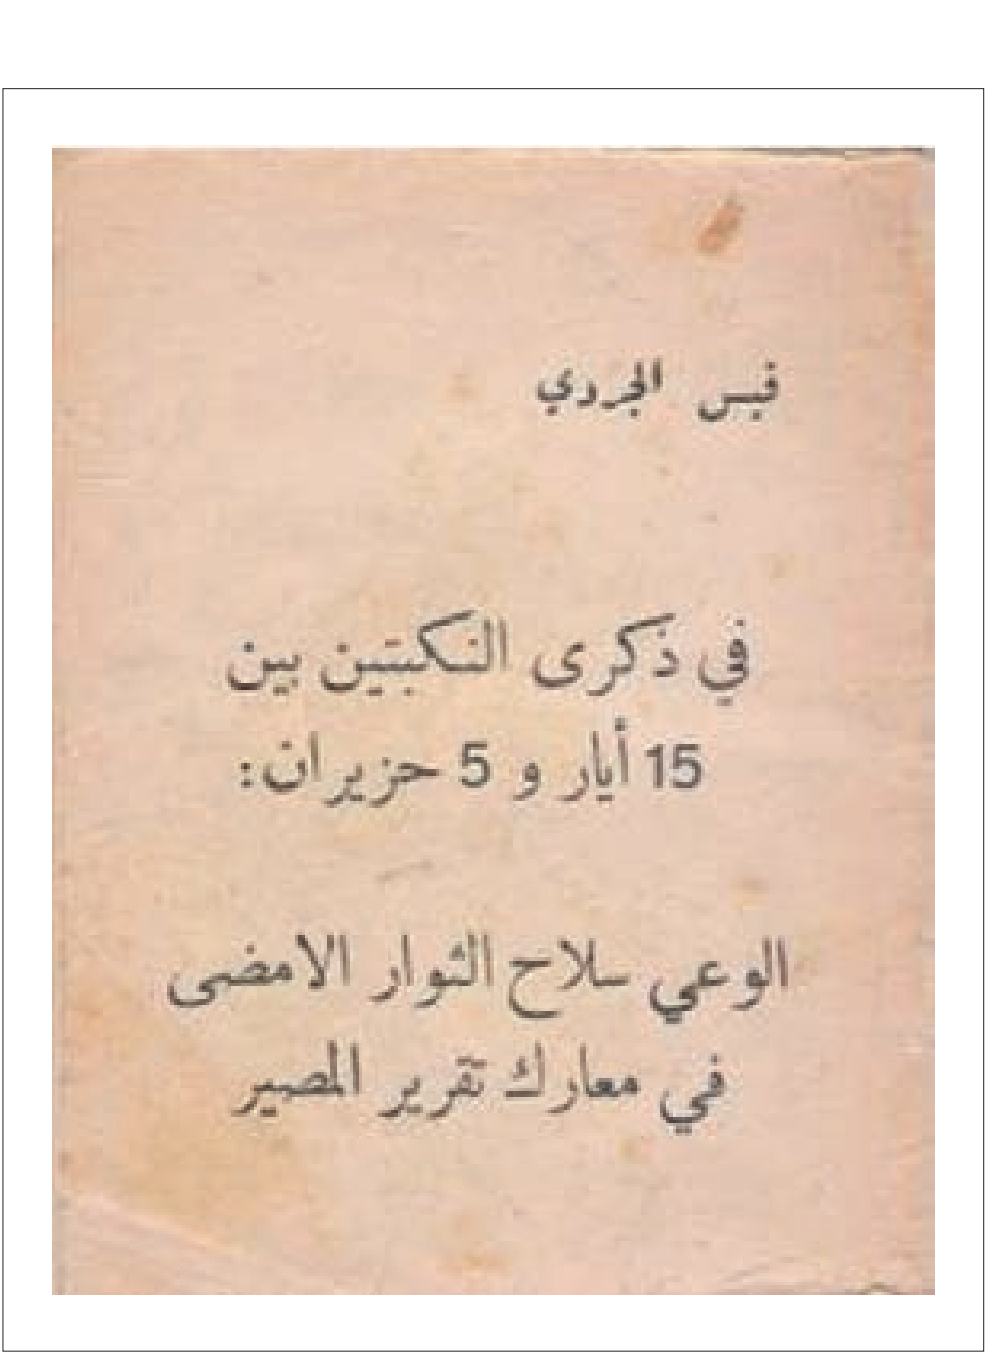 قبس الجردي
في ذكرى النكبتين بين
15 أيار و 5 حزيران:
الوعي سلاح الثوار الامضى
في معارك تقرير المصير